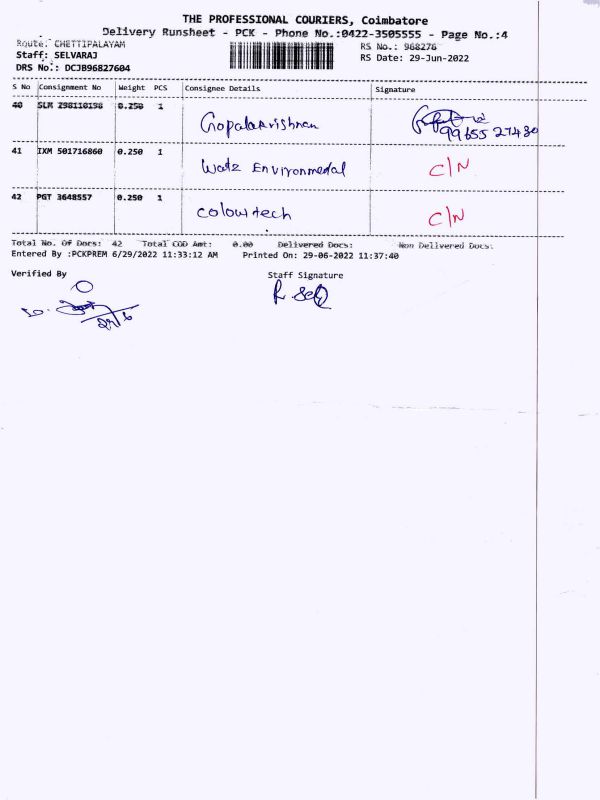 THE PROFESSIONAL COURIERS, Coimbatore
Delivery Runsheet - PCK - Phone No.:0422-3505555 - Page No.:4
Route: CHETTIPALAYAM RS No.: 968276
Staff: SELVARAJ RS Date: 29-Jun-2022
DRS No.: DCJB96827604
S No Consignment No Weight PCS Consignee Details Signature
40 SLM 298110198 0.250 1 Gopalakrishnan
99655 27480
41 IXM 501716860 0.250 1 Watz Environmedal C/N
42 PGT 3648557 0.250 1 colourtech C/N
Total No. Of Docs: 42 Total COD Amt: 0.00 Delivered Docs: Non Delivered Docs:
Entered By :PCKPREM 6/29/2022 11:33:12 AM Printed On: 29-06-2022 11:37:40
Verified By Staff Signature
29/6